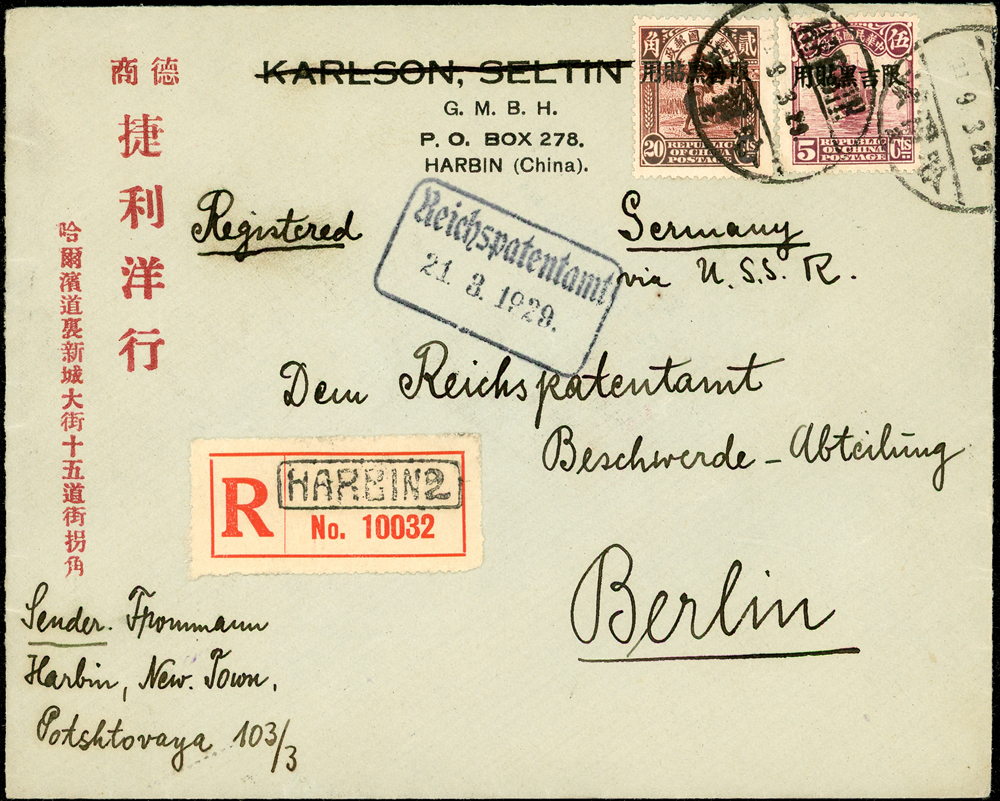 德商
捷利洋行
哈爾濱道裏新城大街十五道街拐角
KARLSON, SELTIN
G. M. B. H.
P. O. BOX 278.
HARBIN (China).
限吉黑貼用
20 CTS
REPUBLIC
OF CHINA
POSTAGE
限吉黑貼用
中華民國郵政
伍
5 CTS
REPUBLIC
OF CHINA
POSTAGE
9 3 29
Registered
Germany
via U.S.S.R.
Reichspatentamt
21. 3. 1929.
Dem Reichspatentamt
Beschwerde-Abteilung
Berlin
R
HARBIN 2
No. 10032
Sender. Frommann
Harbin, New. Town,
Potshtovaya 103/3